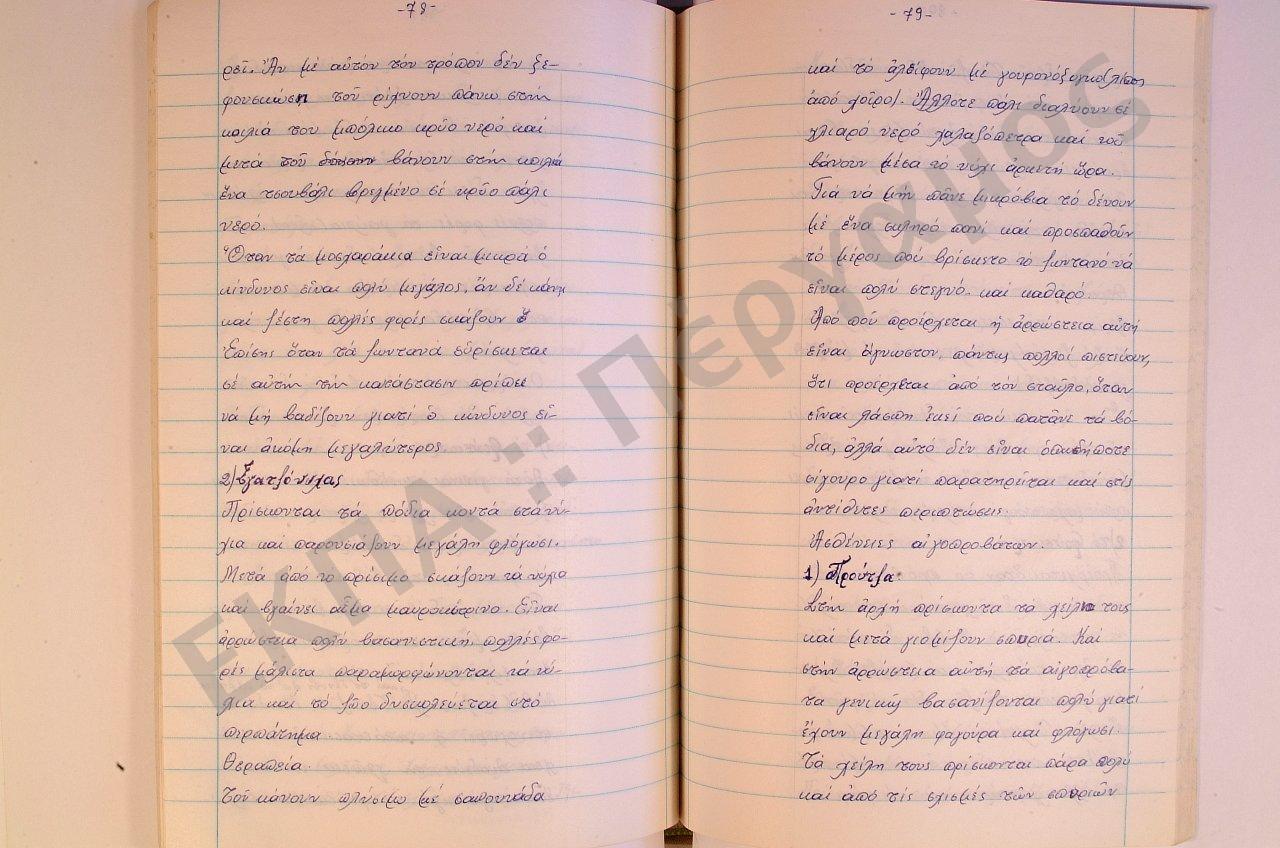 -78-
ρεῖ. Ἄν μέ αὐτόν τόν τρόπον δέν ξε-
φουσκώση τοῦ ρίχνουν πάνω στήν
κοιλιά του μπόλικο κρῦο νερό καί
μετά τοῦ βάνουν στήν κοιλιά
ἕνα τσουβάλι βρεγμένο σέ κρῦο πάλι
νερό.
Ὅταν τά μοσχαράκια εἶναι μικρά ὁ
κίνδυνος εἶναι πολύ μεγάλος, ἄν δέ κάνη
καί ζέστη πολλές φορές σκάζουν
Ἐπίσης ὅταν τά ζωντανά εὑρίσκεται
σέ αὐτήν τήν κατάστασιν πρέπει
νά μή βαδίζουν γιατί ὁ κίνδυνος εἶ-
ναι ἀκόμη μεγαλύτερος.
2)
Πρίσκονται τά πόδια κοντά στά νύ-
χια καί παρουσιάζουν μεγάλη φλόγωσι.
Μετά ἀπό τό πρίσιμο σκάζουν τά νύχια
καί βγαίνει αἷμα μαυροκίτρινο. Εἶναι
ἀρρώστεια πολύ βασανιστική, πολλές φο-
ρές μάλιστα παραμορφώνονται τά νύ-
χια καί τό ζῶο δυσκολεύεται στό
περπάτημα.
Θεραπεία.
Τοῦ κάνουν πλύσιμο μέ σαπουνάδα
-79-
καί τό ἀλείφουν μέ γουρονόξυγκο(λίπος
ἀπό χοῖρο). Ἄλλοτε πάλι διαλύουν σέ
χλιαρό νερό γαλαζόπετρα καί τοῦ
βάνουν μέσα τό νύχι ἀρκετή ὥρα.
Γιά νά μήν πᾶνε μικρόβια τό δένουν
μέ ἕνα σκληρό πανί καί προσπαθοῦν
τό μέρος πού βρίσκετο τό ζωντανό νά
εἶναι πολύ στεγνό. καί καθαρό.
Ἀπό ποῦ προέρχεται ἡ ἀρρώστεια αὐτή
εἶναι ἄγνωστον, πάντως πολλοί πιστεύουν,
ὅτι προέρχεται ἀπό τόν σταῦλο, ὅταν
εἶναι λάσπη ἐκεῖ πού πατᾶνε τά βό-
δια, ἀλλά αὐτό δέν εἶναι ὁπωσδήποτε
σίγουρο γιατί παρατηρεῖται καί στίς
ἀντίθετες περιπτώσεις.
Ἀσθένειες αἰγοπροβάτων.
1) Προύτζα.
Στήν ἀρχή πρίσκοντα τα χείλη τους
καί μετά γεομίζουν σπυριά. Καί
στήν ἀρρώστεια αὐτή τά αἰγοπρόβα-
τα γενικῶς βασανίζονται πολύ γιατί
ἔχουν μεγάλη φαγούρα καί φλόγωσι.
Τά χείλη τους πρίσκονται πάρα πολύ
καί ἀπό τίς σχισμές τῶν σπυριῶν
ΕΚΠΑ .:: Πέργαμος